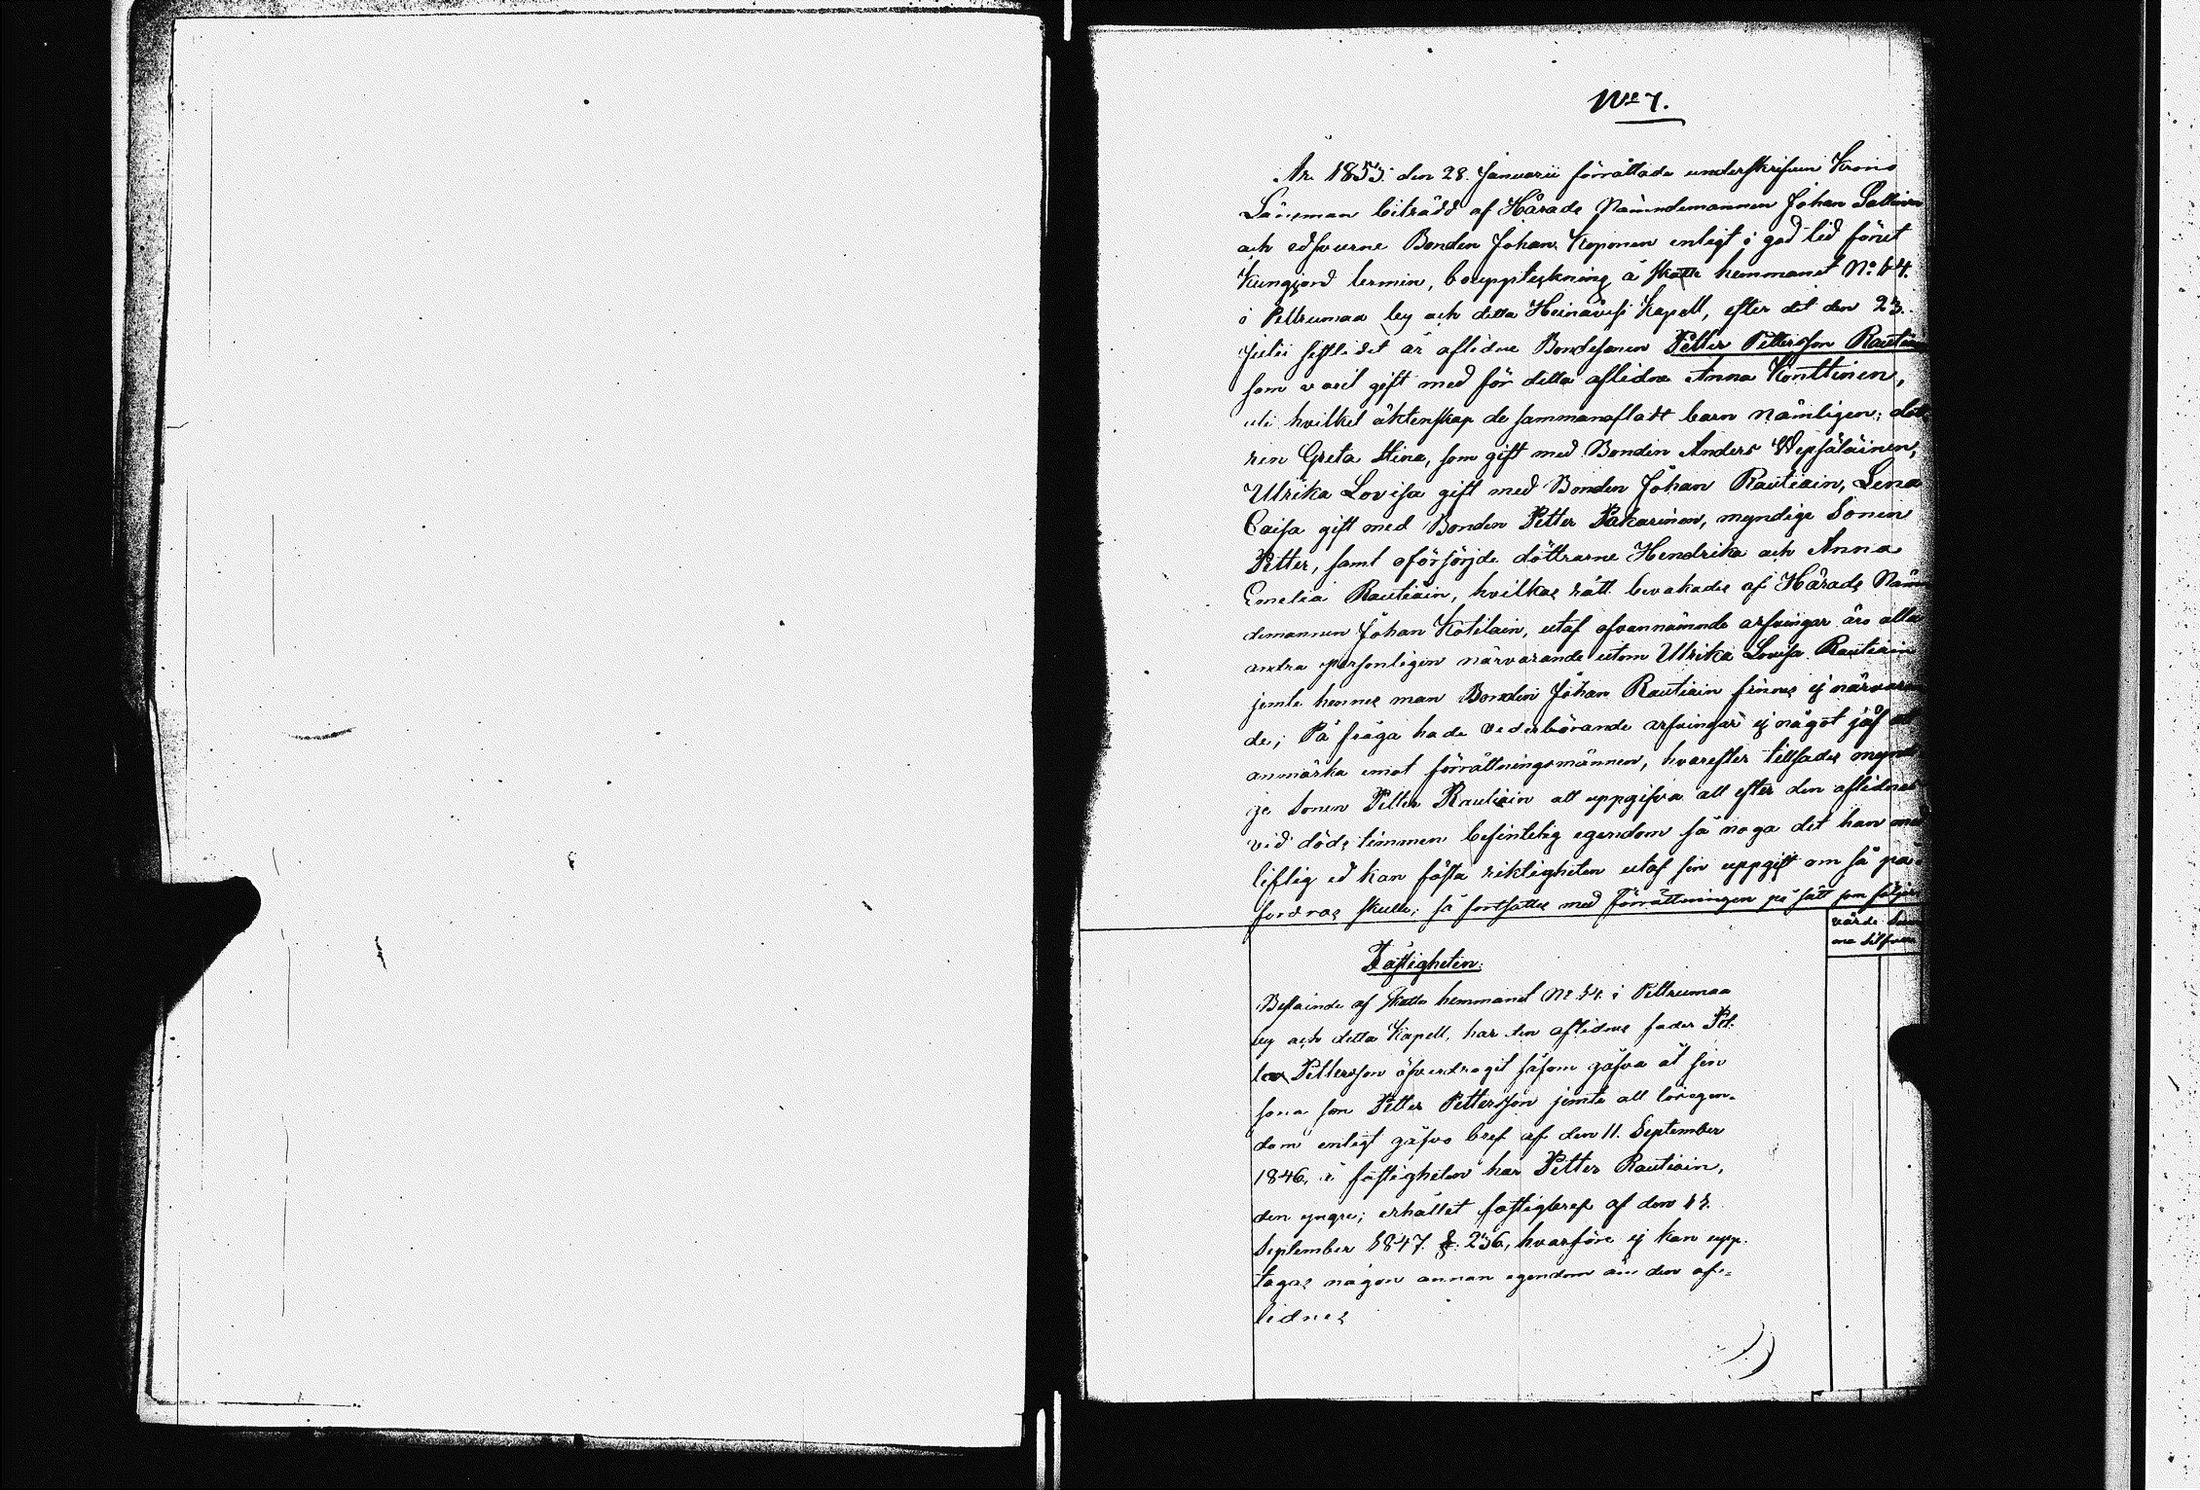 No 7.
År 1853 den 28 Januarii förrättade underskrifven Krono
Länsman biträdd af Härads Nämndemannen Johan Sallinen
och edsvurne Bonden Johan Koponen enligt i god tid förut
Kungjord termin, bouppteckning å skatte hemmanet No 54.
i Petrumaa by och detta Heinävesi Kapell, efter det den 23.
Julii sistlidet år aflidne Bondesonen Petter Pettersson Rautiain
som varit gift med för detta aflidna Anna Konttinen,
uti hvilket äktenskap de sammanaflat barn nämligen; dött-
ren Greta Stina, som gift med Bonden Anders Wepsäläinen,
Ulrika Lovisa gift med Bonden Johan Rautiain, Lena
Caisa gift med Bonden Petter Pakarinen, myndige Sonen
Petter, samt oförsörjde döttrarne Hendrika och Anna
Emelia Rautiain, hvilkas rätt bevakades af Härads Näm
demannen Johan Kotilain, utaf ofvannämnde arfvingar äro alla
andra personligen närvarande utom Ulrika Lovisa Rautiain
jemte hennes man Bonden Johan Rautiain finnes ej närvaran
de; På fråga hade vederbörande arfvingar ej något jäf att
anmärka emot förrättningsmännen, hvarefter tillsades myndi
ge Sonen Petter Rautiain att uppgifva all efter den aflidnes
vid döds timmen befintelig egendom så noga det han med
liflig ed kan fästa riktigheten utaf sin uppgift om så på-
fordras skulle; så fortsattes med förrättningen på sätt som följer
värde Sum
ma silfver
Fastigheten:
Bestående af skatte hemmanet No 54. i Petrumaa
by och detta Kapell, har den aflidnes fader Pet-
ter Pettersson öfverdragit såsom gåfva åt sin
sons son Petter Pettersson jemte all lösegen-
dom enligt gåfvo bref af den 11. September
1846, å fastigheten har Petter Rautiain,
den yngre; erhållet fastigbref af den 13.
September 1847. §. 236, hvarföre ej kan upp-
tagas någon annan egendom än den af-
lidnes